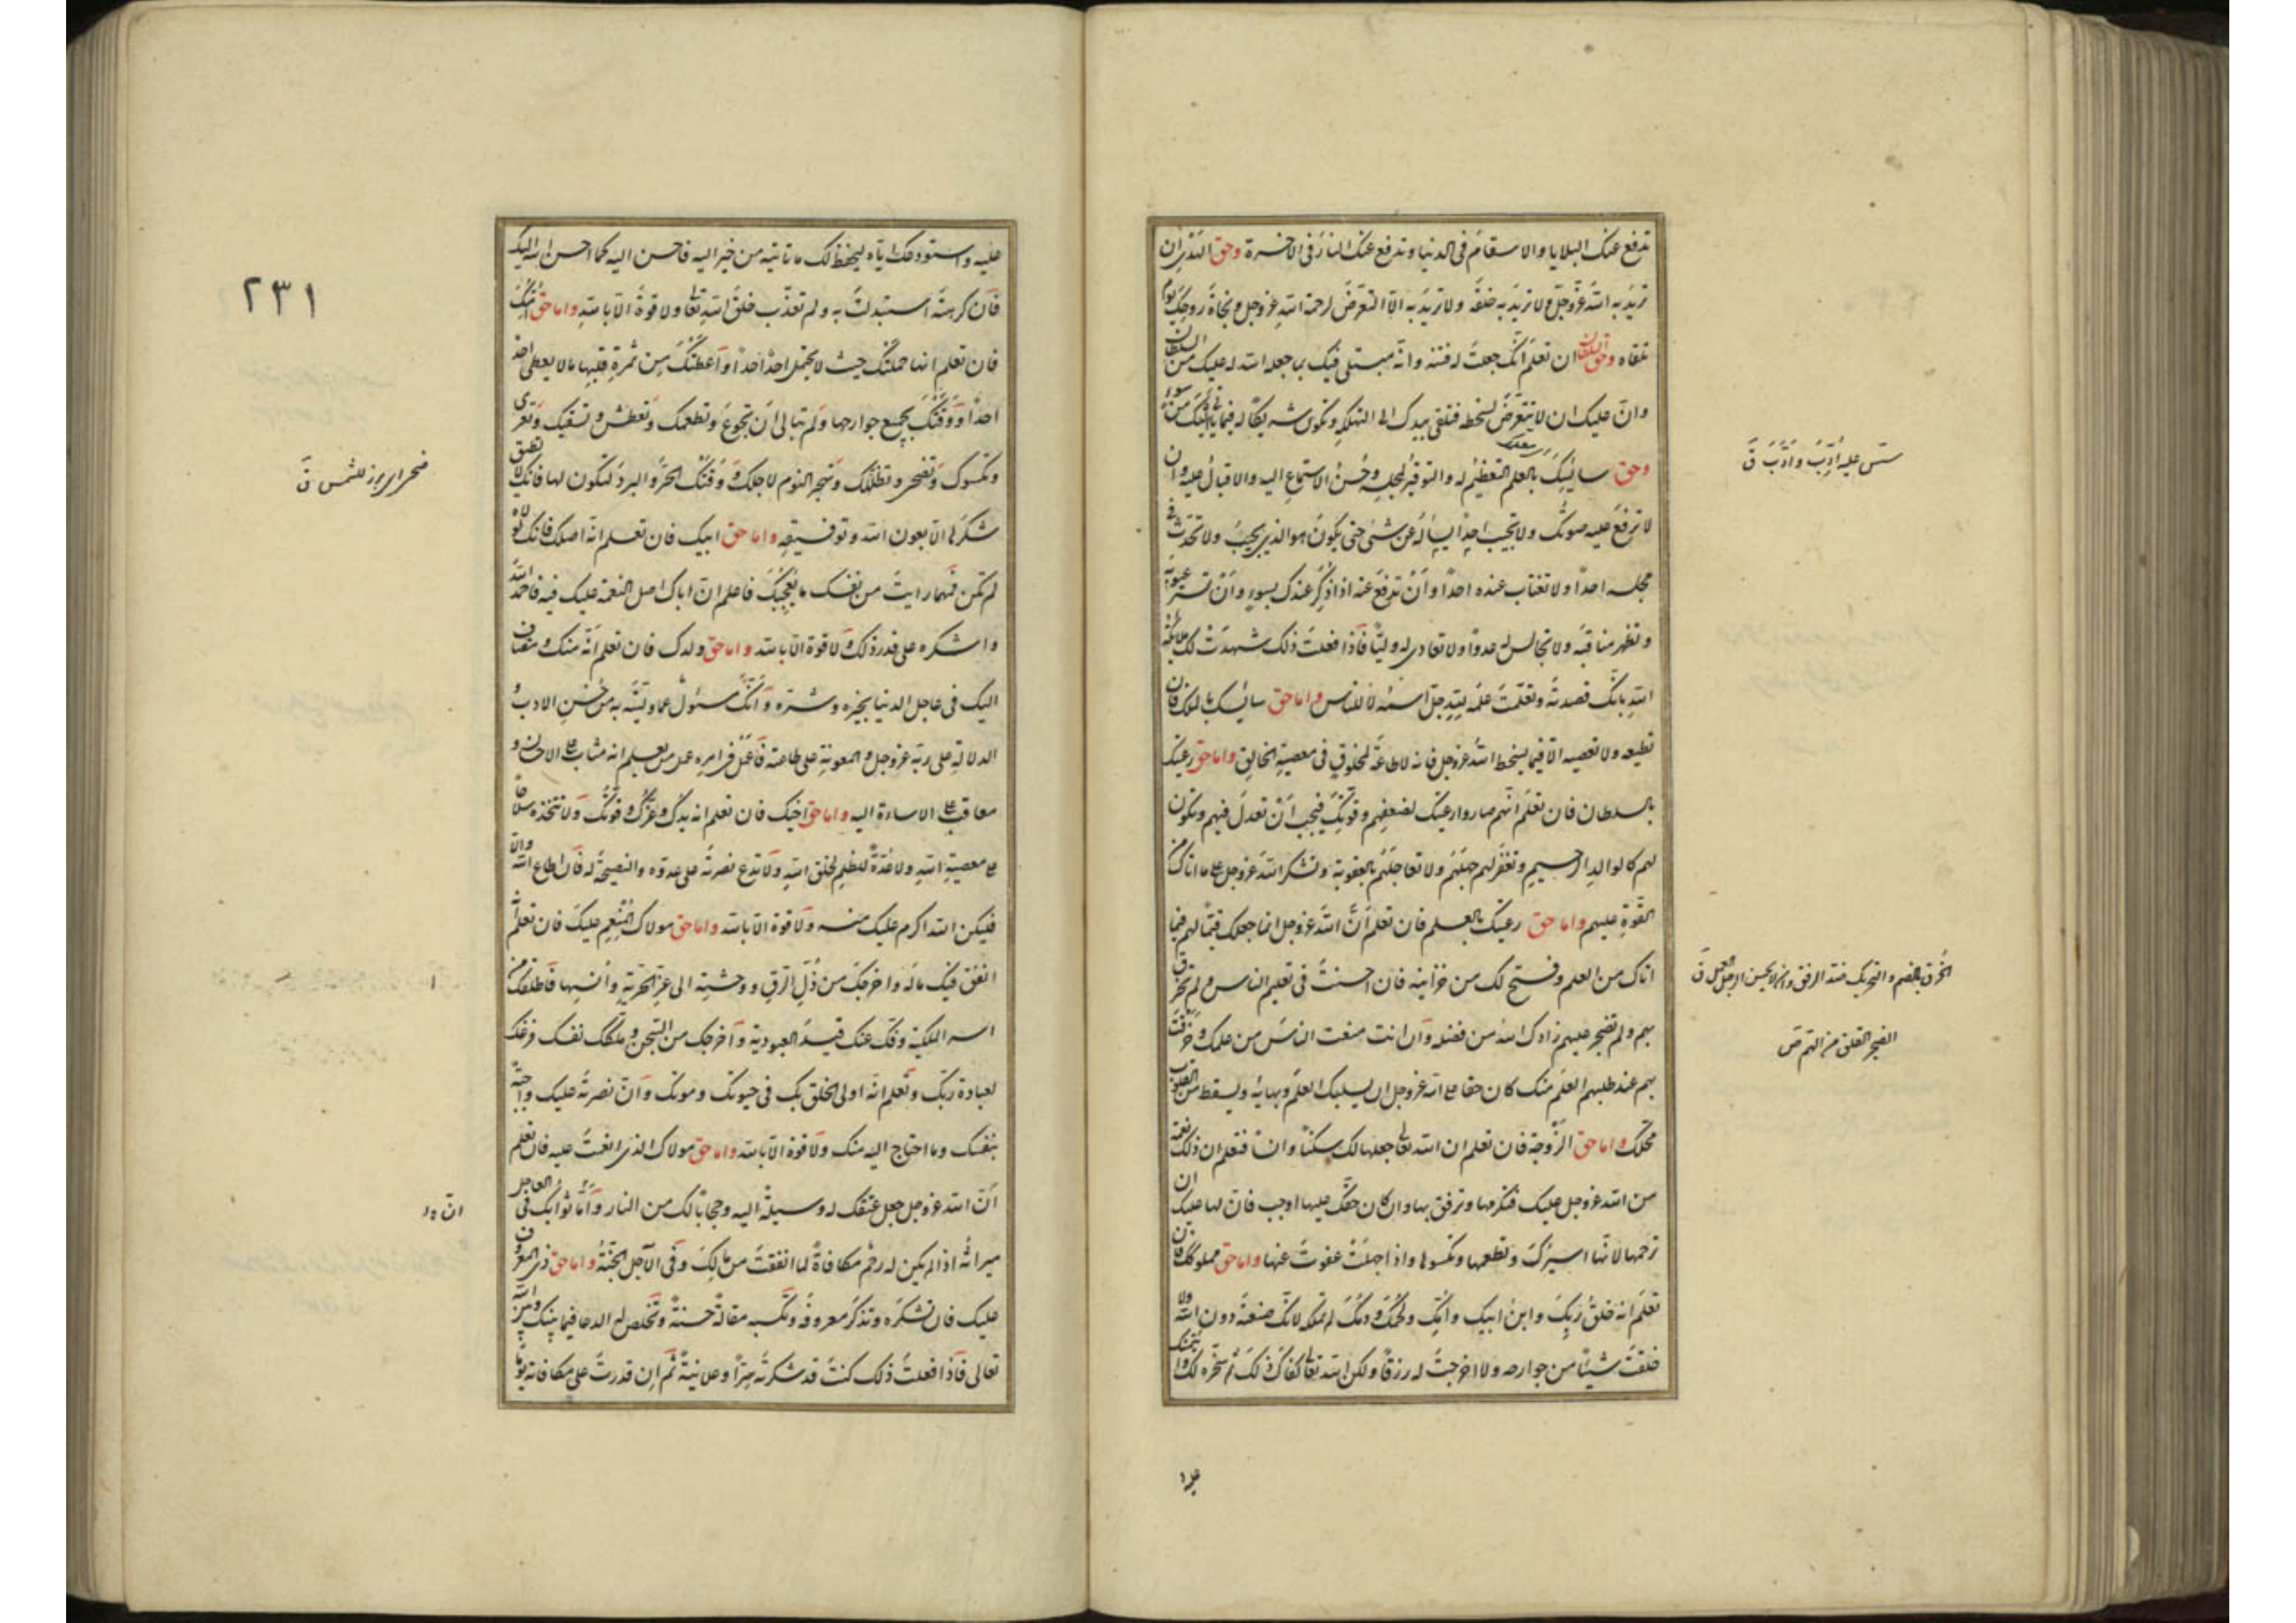 تدفع عنك البلايا والاسقام فى الدنيا وتدفع عنك النار فى الاخرة وحق الهدى ان
تريد به الله عزّ وجلّ ولا تريد به خلقه ولا تريد به الّا التعرّض لرحمة الله عز وجل ونجاة روحك يوم
تلقاه وحق السلطان ان تعلم انّك جعلت له فتنة وانّه مبتلى فيك بما جعله الله له عليك من السلطان
وانّ عليك ان لا تتعرّض لسخطه فتلقى بيدك الى التهلكة وتكون شريكا له فيما ياتى اليك من سوء
وحق سائسك بالعلم التعظيم له والتوقير لمجلسه وحسن الاستماع اليه والاقبال عليه وان
لا ترفع عليه صوتك ولا تجيب احدا يسأله عن شئ حتى يكون هو الذى يجيب ولا تحدّث فى
مجلسه احدا ولا تغتاب عنده احدا وأن تدفع عنه اذا ذكر عندك بسوء وأن تستر عيوبه
وتظهر مناقبه ولا تجالس له عدوّا ولا تعادى له وليّا فاذا فعلت ذلك شهدت لك ملائكة
الله بانّك قصدته وتعلّمت علمه لله جلّ اسمه لا للناس واما حق سائسك بالملك فان
تطيعه ولا تعصيه الّا فيما يسخط الله عز وجل فانه لا طاعة لمخلوق فى معصية الخالق واما حق رعيتك
بالسلطان فان تعلم انّهم صاروا رعيتك لضعفهم وقوّتك فيجب أن تعدل فيهم وتكون
لهم كالوالد الرحيم وتغفر لهم جهلهم ولا تعاجلهم بالعقوبة وتشكر الله عز وجل على ما اتاك من
القوّة عليهم واما حق رعيتك بالعلم فان تعلم أنّ الله عز وجل انما جعلك قيّما لهم فيما
اتاك من العلم وفتح لك من خزاينه فان احسنت فى تعليم الناس ولم تخرق
بهم ولم تضجر عليهم زادك الله من فضله وان انت منعت الناس من علمك وخرقت
بهم عند طلبهم العلم منك كان حقا على الله عز وجل ان يسلبك العلم وبهائه ويسقط من القلوب
محلّك واما حق الزّوجة فان تعلم ان الله تعالى جعلها لك سكنا وانسا فتعلم ان ذلك نعمة
من الله عز وجل عليك فتكرمها وترفق بها وان كان حقّك عليها اوجب فان لها عليك ان
ترحمها لانّها اسيرك وتطعمها وتكسوها واذا جهلت عفوت عنها واما حق مملوكك فان
تعلم انه خلق ربّك وابن ابيك وامّك ولحمك ودمك لم تملكه لانّك صنعته دون الله ولا
خلقت شيئا من جوارحه ولا اخرجت له رزقا ولكن الله تعالى كفاك ذلك ثم سخّره لك وائتمنك
ستس عليه أدّب وأدّب ق
الخرق بالضم والتحريك ضد الرفق وان لا يحسن الرجل العمل ق
الضجر القلق من الهم ص
عليه واستودعك ايّاه ليحفظ لك ما تأتيه من خير اليه فاحسن اليه كما احسن الله اليك
فان كرهته استبدلت به ولم تعذّب خلق الله تعالى ولا قوة الّا بالله واما حق امّك
فان تعلم انها حملتك حيث لا يحتمل احد احدا وأعطتك من ثمرة قلبها ما لا يعطى احد
احدا ووقتك بجميع جوارحها ولم تبال أن تجوع وتطعمك وتعطش وتسقيك وتعرى
وتكسوك وتضحى وتظلّك وتهجر النوم لاجلك ووقتك الحرّ والبرد لتكون لها فانك لا تطيق
شكرها الّا بعون الله وتوفيقه واما حق ابيك فان تعلم انّه اصلك فانّك لولاه
لم تكن فمهما رايت من نفسك ما يعجبك فاعلم انّ اباك اصل النعمة عليك فيه فاحمد الله
واشكره على قدر ذلك ولا قوة الّا بالله واما حق ولدك فان تعلم أنّه منك ومضاف
اليك فى عاجل الدنيا بخيره وشرّه وأنّك مسئول عما ولّيته به من حسن الادب و
الدلالة على ربّه عز وجل والمعونة على طاعته فاعمل فى امره عمل من يعلم انه مثاب على الاحسان و
معاقب على الاساءة اليه واما حق اخيك فان تعلم انه يدك وعزّك وقوّتك ولا تتخذه سلاحا
على معصية الله ولا عدّة للظلم لخلق الله ولا تدع نصرته على عدوّه والنصيحة له فان اطاع الله والّا
فليكن الله اكرم عليك منه ولا قوة الّا بالله واما حق مولاك المنعم عليك فان تعلم أنّه
انفق فيك ماله واخرجك من ذلّ الرّق ووحشته الى عزّ الحرّية وأنسها فأطلقك من
اسر الملكية وفكّ عنك قيد العبودية وأخرجك من السّجن وملّكك نفسك وفرّغك
لعبادة ربّك وتعلم انّه اولى الخلق بك فى حيوتك وموتك وانّ نصرته عليك واجبة
بنفسك وما احتاج اليه منك ولا قوة الّا بالله واما حق مولاك الذى انعمت عليه فان تعلم
أنّ الله عز وجل جعل عتقك له وسيلة اليه وحجابا لك من النار وأنّ ثوابك فى العاجل
ميراثه اذا لم يكن له رحم مكافاة لما انفقت من مالك وفى الآجل الجنّة واما حق ذى المعروف
عليك فان تشكره وتذكر معروفه وتكسبه مقالة حسنة وتخلص له الدعا فيما بينك وبين الله
تعالى فاذا فعلت ذلك كنت قد شكرته سرّا وعلانية ثم ان قدرت على مكافاته يوما
٢٣١
ضحى اى برز للشمس ق